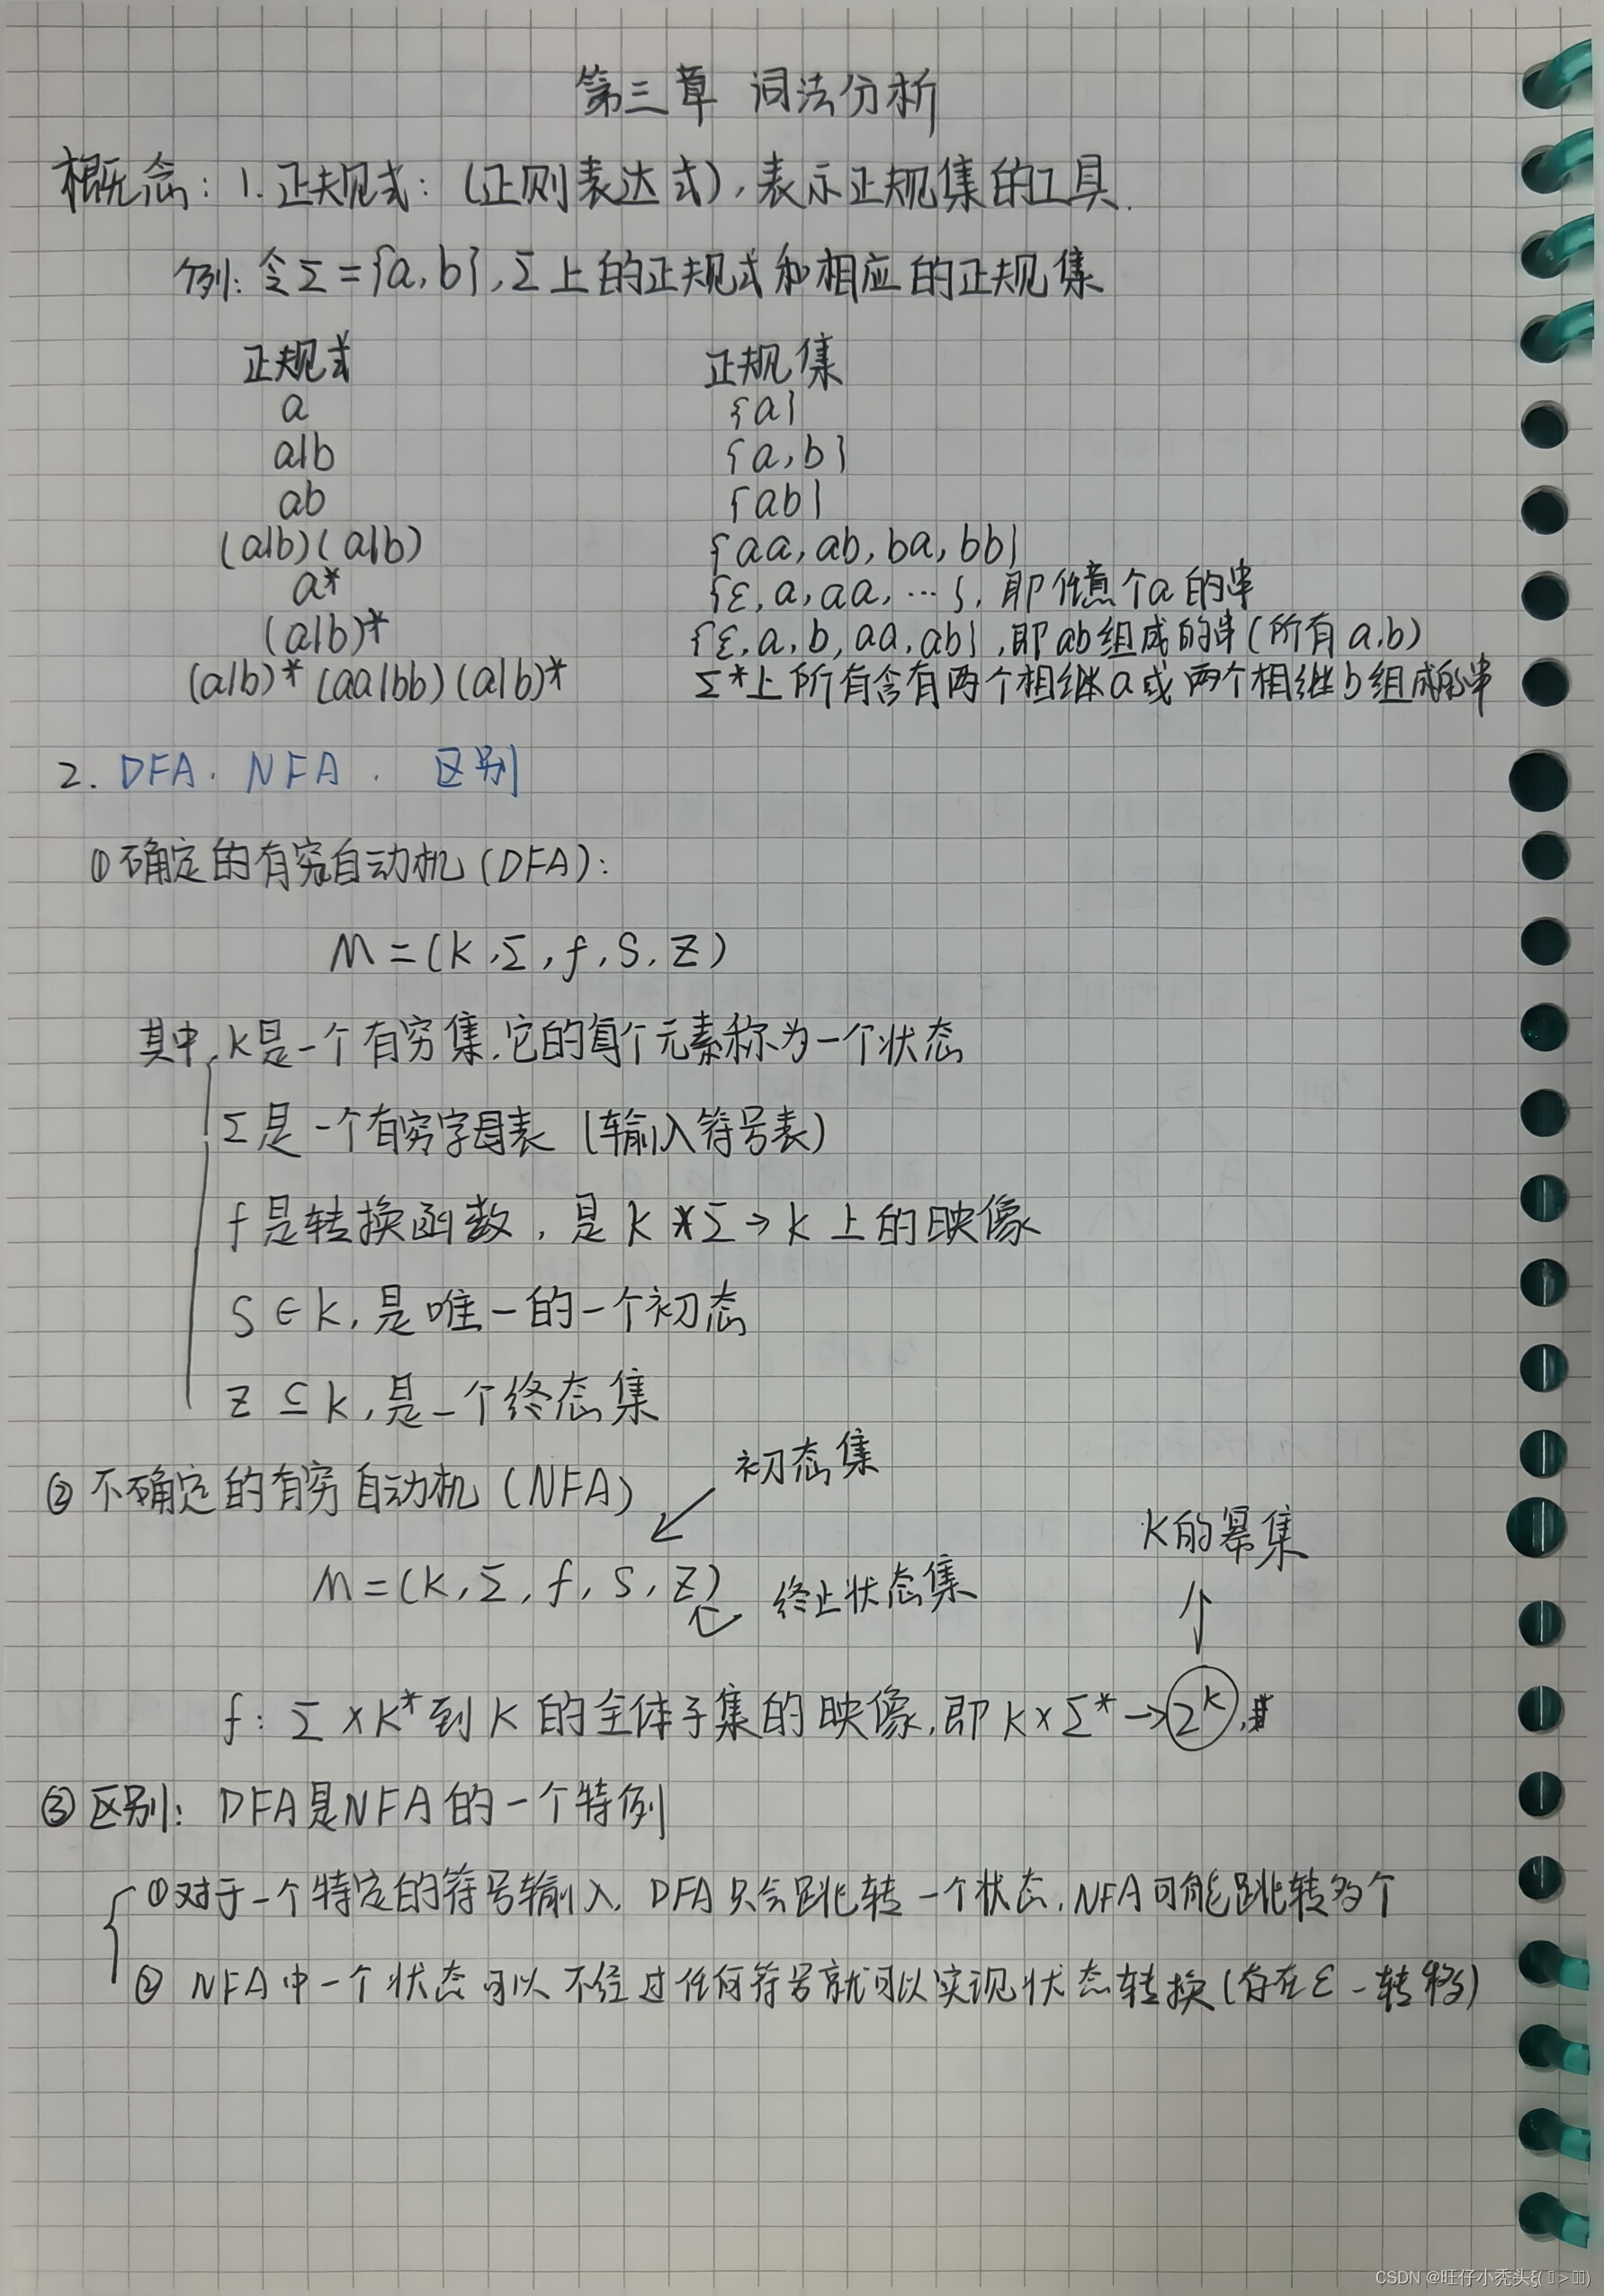 第三章 词法分析
概念: 1. 正规式: (正则表达式), 表示正规集的工具.
例: 令Σ={a, b}, Σ上的正规式和相应的正规集
正规式 正规集
a {a}
a|b {a, b}
ab {ab}
(a|b)(a|b) {aa, ab, ba, bb}
a* {ε, a, aa, …}, 即任意个a的串
(a|b)* {ε, a, b, aa, ab}, 即ab组成的串(所有a,b)
(a|b)*(aa|bb)(a|b)* Σ*上所有含有两个相继a或两个相继b组成的串
2. DFA. NFA. 区别
①确定的有穷自动机(DFA):
M=(K, Σ, f, S, Z)
其中, K是一个有穷集, 它的每个元素称为一个状态
Σ是一个有穷字母表 (输入符号表)
f是转换函数, 是K*Σ→K上的映像
S∈K, 是唯一的一个初态
Z⊆K, 是一个终态集
初态集
②不确定的有穷自动机(NFA)
K的幂集
M=(K, Σ, f, S, Z) 终止状态集
f: Σ×K*到K的全体子集的映像, 即K×Σ*→2^K,
③区别: DFA是NFA的一个特例
①对于一个特定的符号输入, DFA只会跳转一个状态, NFA可能跳转多个
② NFA中一个状态可以不经过任何符号就可以实现状态转换(存在ε-转移)
CSDN @旺仔小秃头